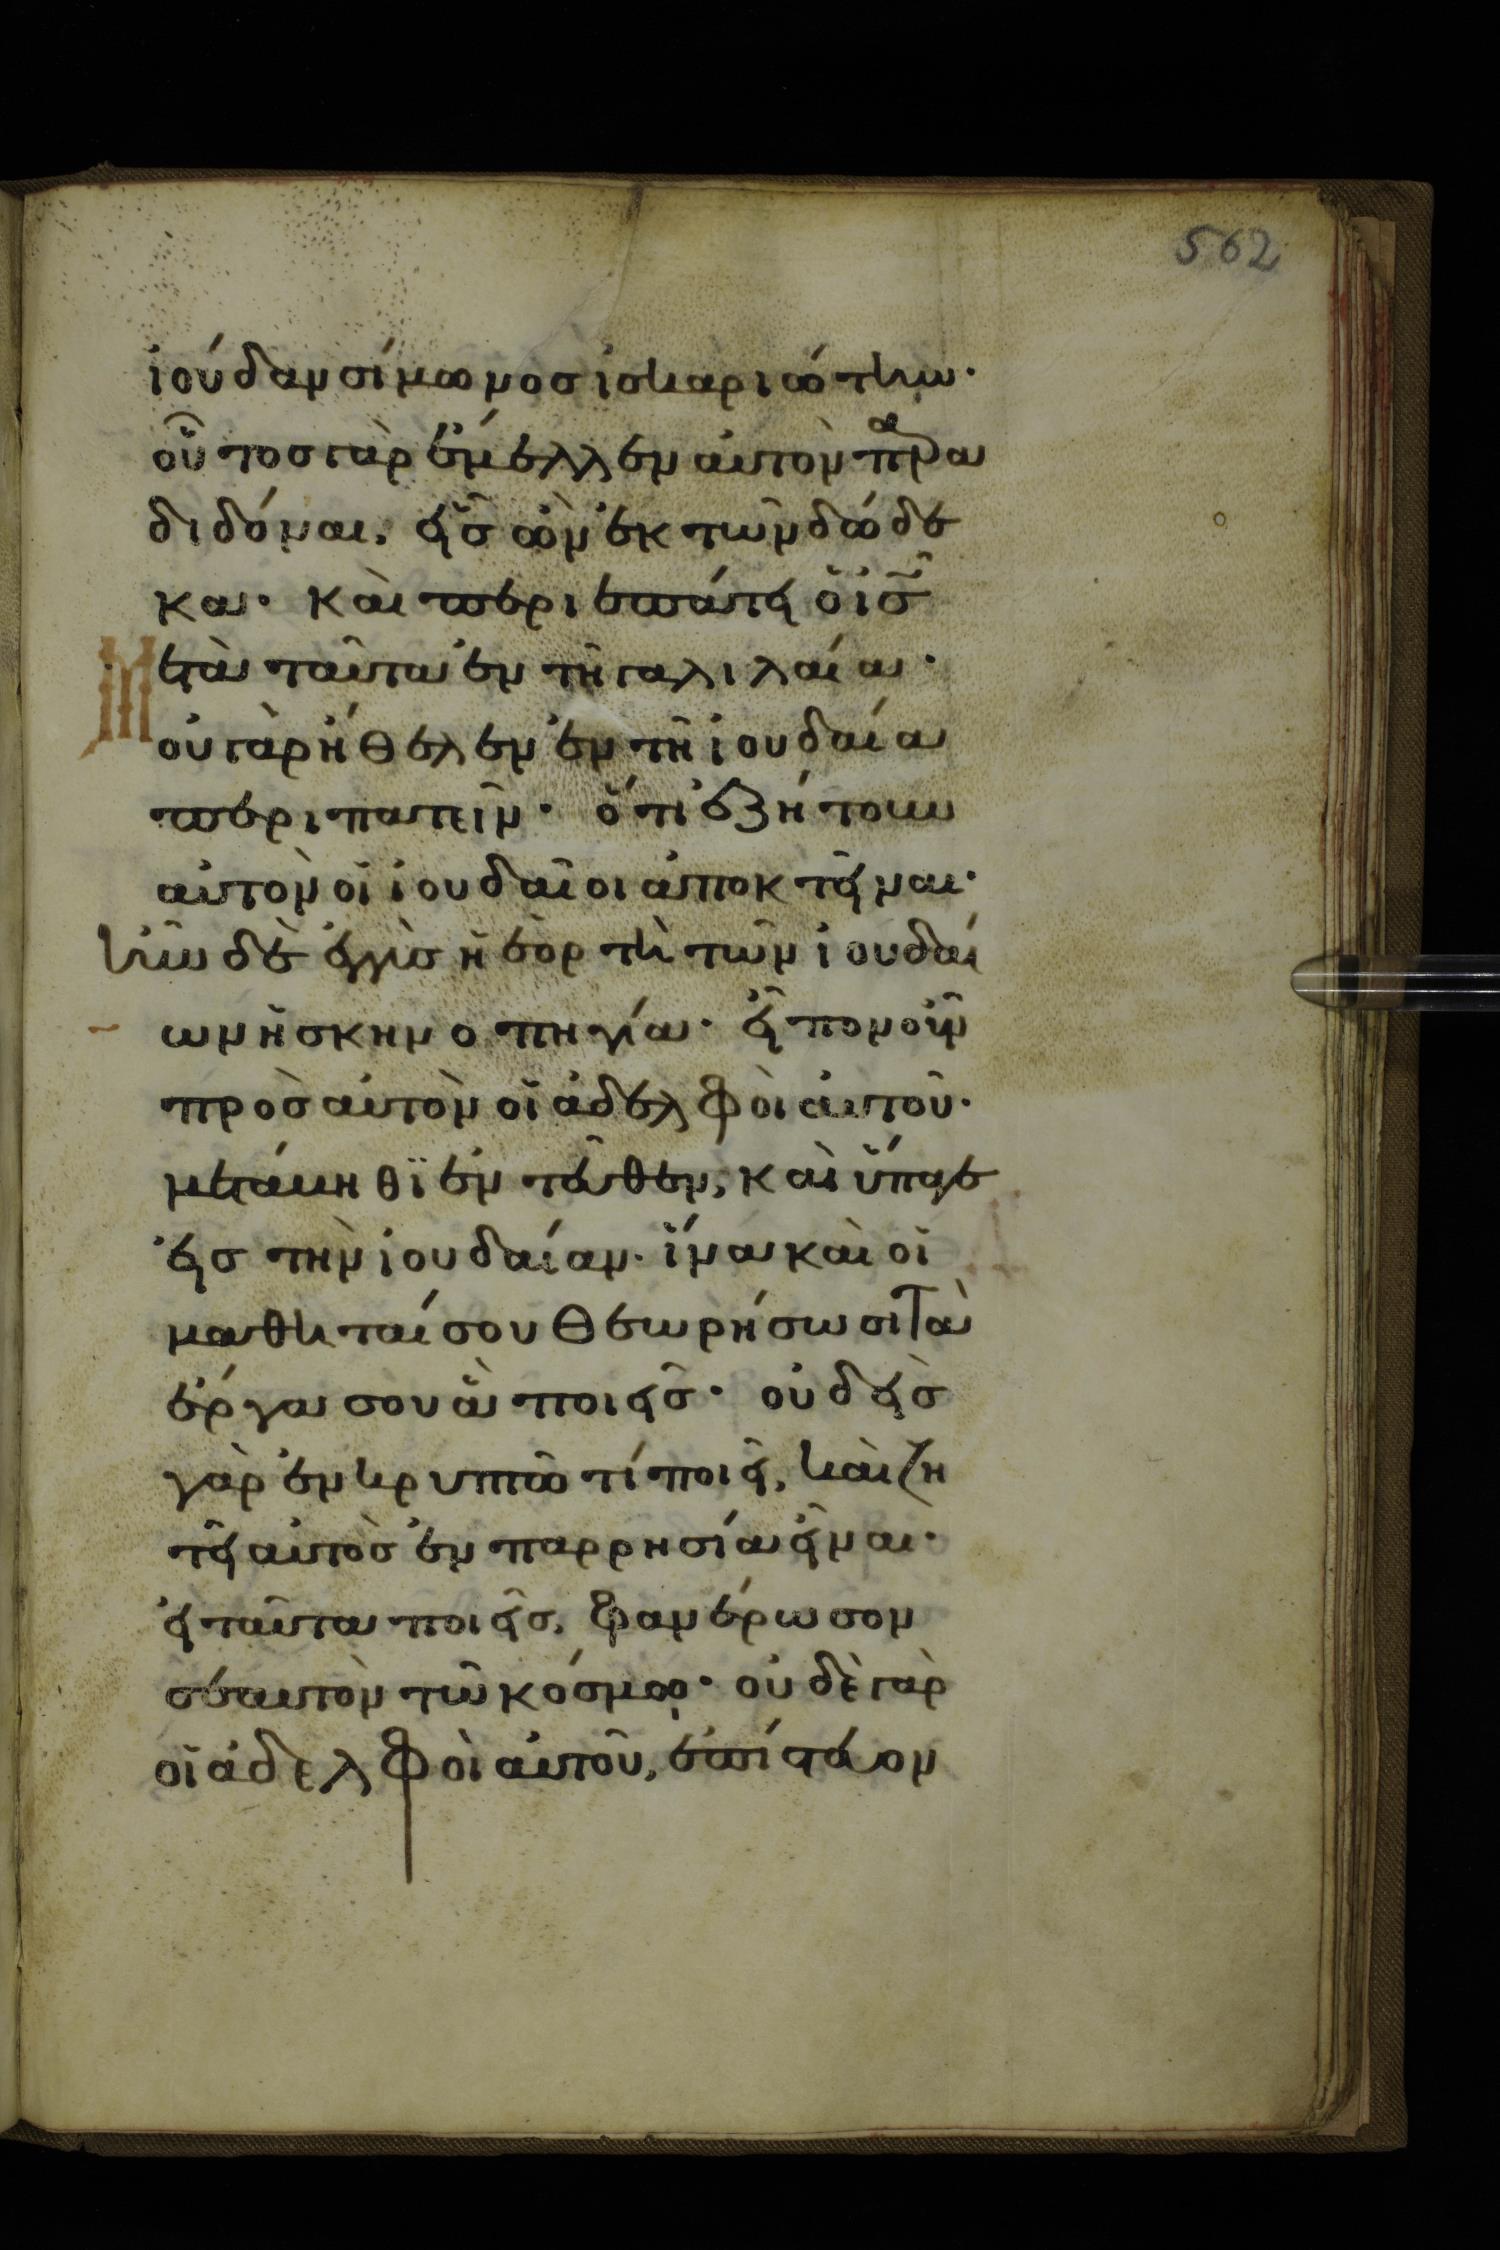 562
ἰούδαν σίμωνος ἰσκαριώτην·
οὗτος γὰρ ἔμελλεν αὐτὸν παρα
διδόναι, εἷς ὢν ἐκ τῶν δώδε
κα· καὶ περιεπάτει ὁ ις̅
Μετὰ ταῦτα ἐν τῆ γαλιλαία·
οὐ γὰρ ἤθελεν ἐν τῆ ἰουδαία
περιπατεῖν· ὅτι ἐζήτουν
αὐτὸν οἱ ἰουδαῖοι ἀποκτεῖναι·
ἦν δὲ ἐγγὺς ἡ ἑορτὴ τῶν ἰουδαί
ων ἡ σκηνοπηγία· εἶπον οὖν
πρὸς αὐτὸν οἱ ἀδελφοὶ αὐτοῦ·
μετάβηθϊ ἐντεῦθεν, καὶ ὕπαγε
εἰς τὴν ἰουδαίαν· ἵνα καὶ οἱ
μαθηταί σου θεωρήσωσι τὰ
ἔργα σου ἃ ποιεῖς· οὐδεὶς
γὰρ ἐν κρυπτῶ τί ποιεῖ, καὶ ζη
τεῖ αὐτὸς ἐν παρρησία εἶναι·
εἰ ταῦτα ποιεῖς, φανέρωσον
σεαυτὸν τῶ κόσμω· οὐδὲ γὰρ
οἱ ἀδελφοὶ αὐτοῦ, ἐπίστευον